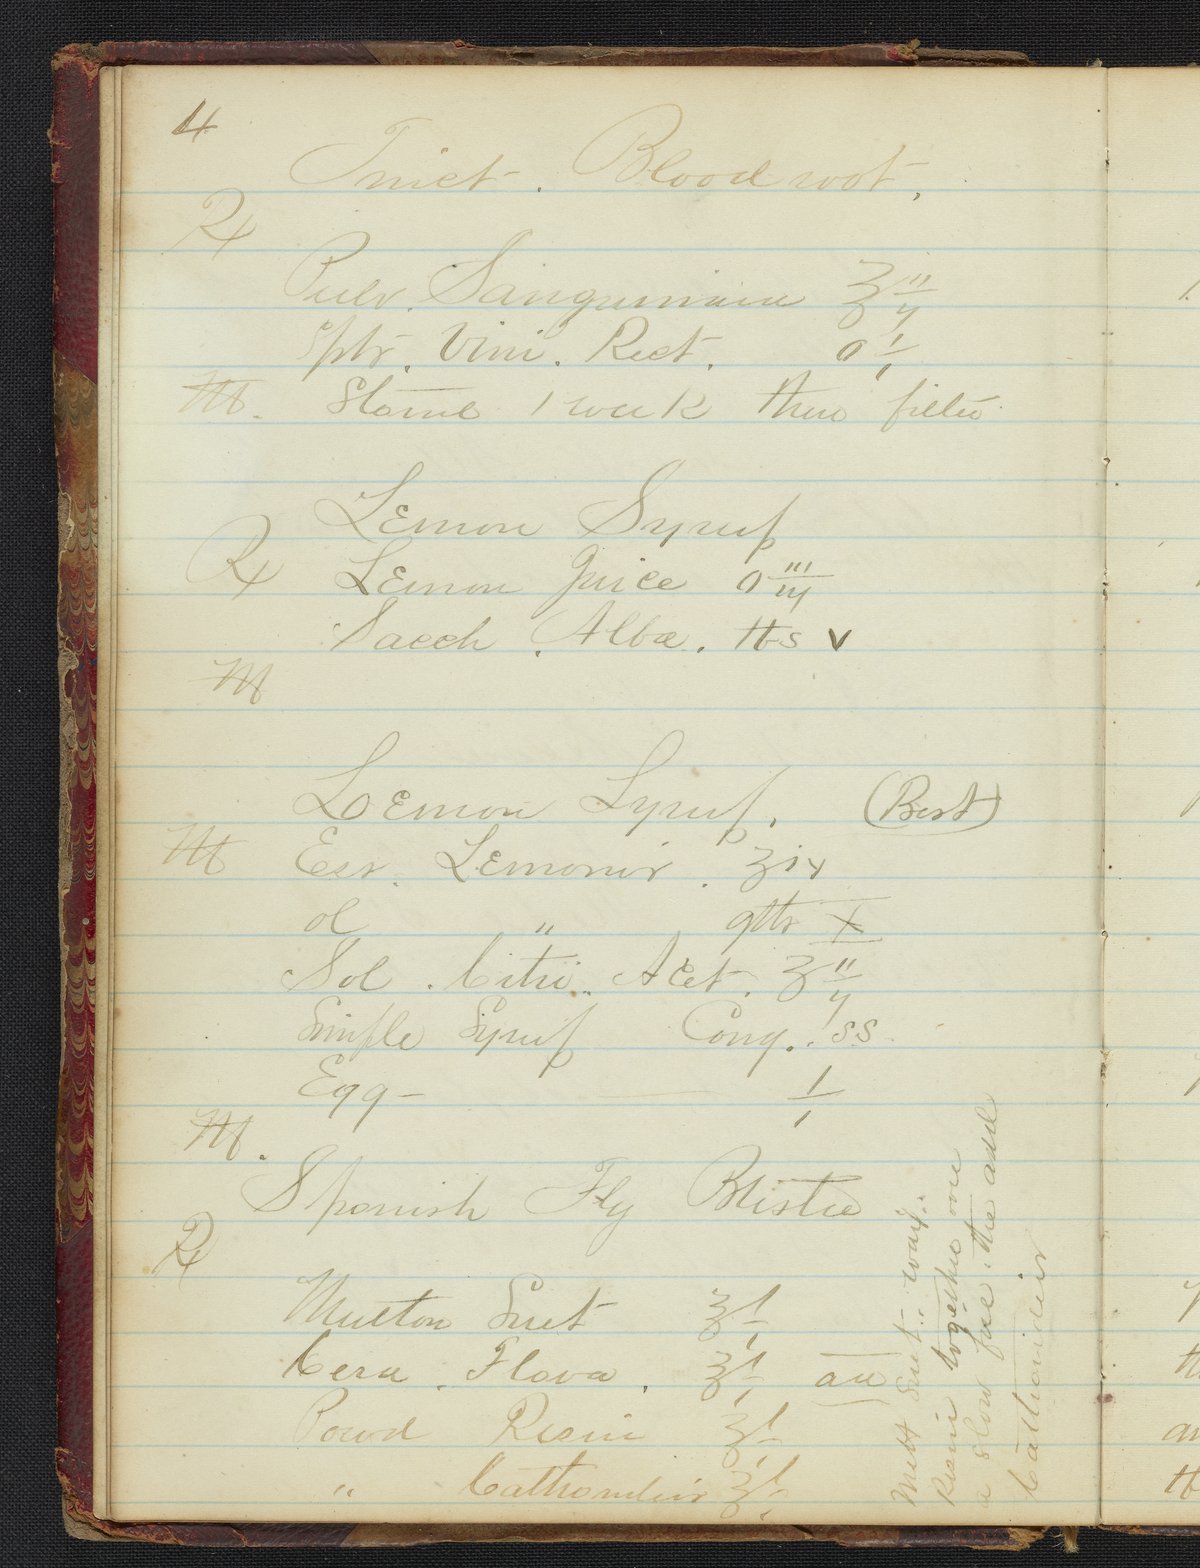 4
Tinct. Bloodroot.
℞
Pulv. Sanguinaria ℥ ii
Spts. Vini. Rect. O i
M. Stand 1 week then filter
Lemon Syrup
℞ Lemon Juice O iii
Sacch. Alba. ℔s v
M
Lemon Syrup. (Best)
M Ess. Lemonis. ʒix
ol " gtts x
Sol. Citri. Acet. ℥ ii
Simple Syrup Cong. ss
Egg — 1
M.
Spanish Fly Blister
℞
Mutton Suet ℥i
Cera. Flava. ℥i aa
Powd Resin ℥i
" Cathandirs ℥i
Melt Suet, wax,
Resin together over
a slow fire. the add
Cathandirs